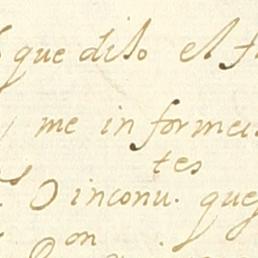 que diso el
me informei
tes
O inconu. que
on